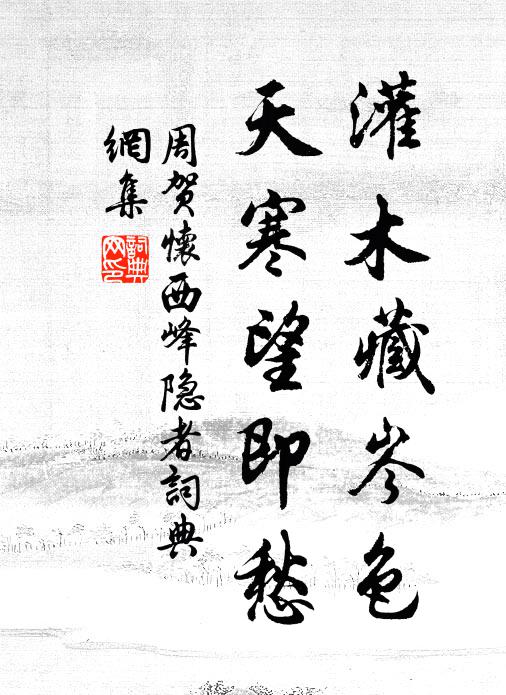 灌木藏岑色
天寒望即愁
周贺懷西峰隐者詞典
網集
詞典网印